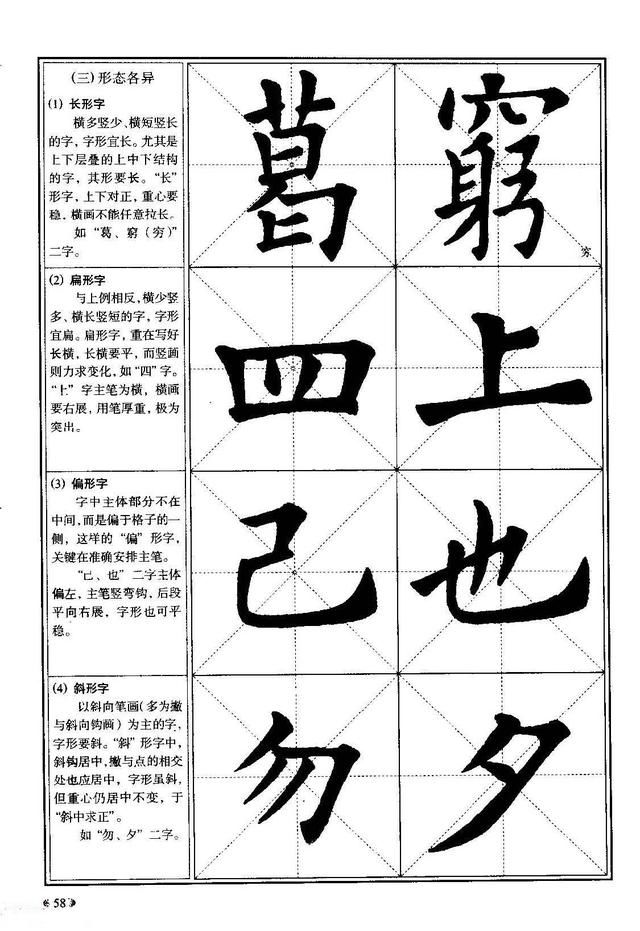 (三)形态各异
(1) 长形字
横多竖少、横短竖长
的字，字形宜长。尤其是
上下层叠的上中下结构
的字，其形要长。“长”
形字，上下对正，重心要
稳，横画不能任意拉长。
如“葛、窮(穷)”
二字。
葛 窮
穷
(2) 扁形字
与上例相反，横少竖
多、横长竖短的字，字形
宜扁。扁形字，重在写好
长横，长横要平，而竖画
则力求变化，如“四”字。
“上”字主笔为横，横画
要右展，用笔厚重，极为
突出。
四 上
(3) 偏形字
字中主体部分不在
中间，而是偏于格子的一
侧，这样的“偏”形字，
关键在准确安排主笔。
“己、也”二字主体
偏左，主笔竖弯钩，后段
平向右展，字形也可平
稳。
己 也
(4) 斜形字
以斜向笔画(多为撇
与斜向钩画)为主的字，
字形要斜。“斜”形字中，
斜钩居中，撇与点的相交
处也应居中，字形虽斜，
但重心仍居中不变，于
“斜中求正”。
如“勿、夕”二字。
勿 夕
58